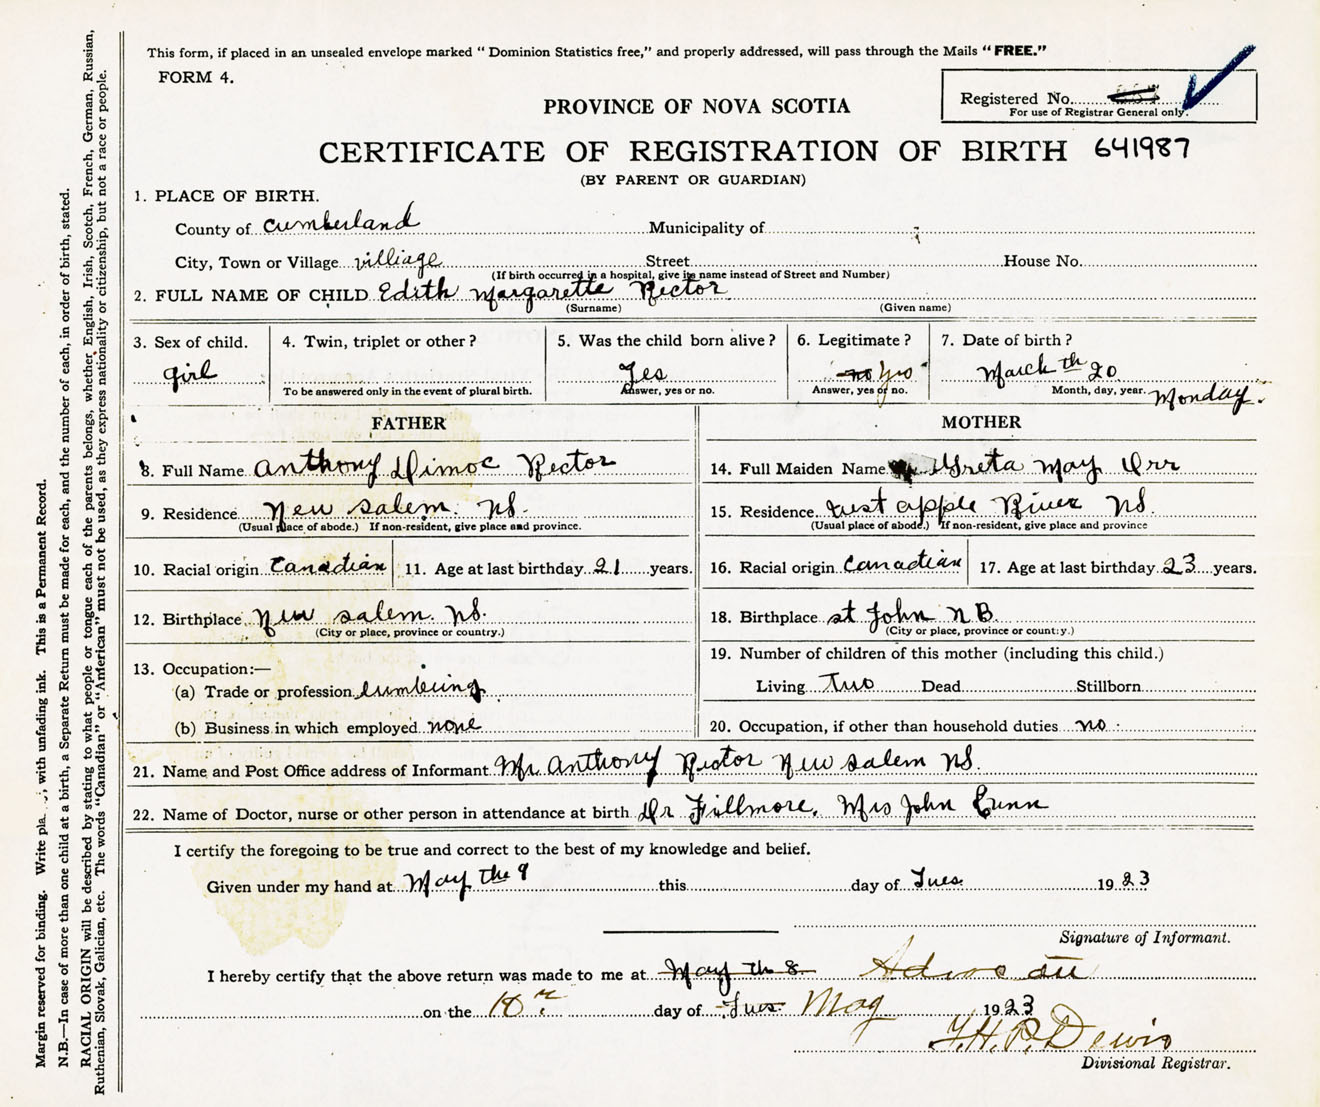 This form, if placed in an unsealed envelope marked “Dominion Statistics free,” and properly addressed, will pass through the Mails “FREE.”
FORM 4.
Registered No.
For use of Registrar General only.
PROVINCE OF NOVA SCOTIA
CERTIFICATE OF REGISTRATION OF BIRTH 641987
(BY PARENT OR GUARDIAN)
1. PLACE OF BIRTH.
County of Cumberland Municipality of
City, Town or Village villiage Street House No.
(If birth occurred in a hospital, give its name instead of Street and Number)
2. FULL NAME OF CHILD Edith Margarette Rector
(Surname) (Given name)
3. Sex of child. girl
4. Twin, triplet or other?
To be answered only in the event of plural birth.
5. Was the child born alive? Yes
Answer, yes or no.
6. Legitimate? no yes
Answer, yes or no.
7. Date of birth? March th 20
Month, day, year. Monday.
FATHER
8. Full Name Anthony Dimoc Rector
9. Residence New Salem. NS.
(Usual place of abode.) If non-resident, give place and province.
10. Racial origin Canadian 11. Age at last birthday 21 years.
12. Birthplace New Salem. NS.
(City or place, province or country.)
13. Occupation:—
(a) Trade or profession lumbering
(b) Business in which employed none
MOTHER
14. Full Maiden Name Greta May Orr
15. Residence apple River NS.
(Usual place of abode.) If non-resident, give place and province
16. Racial origin Canadian 17. Age at last birthday 23 years.
18. Birthplace st John N B.
(City or place, province or country.)
19. Number of children of this mother (including this child.)
Living Two Dead Stillborn
20. Occupation, if other than household duties no
21. Name and Post Office address of Informant Mr Anthony Rector New Salem NS.
22. Name of Doctor, nurse or other person in attendance at birth Dr Fillmore. Mrs John
I certify the foregoing to be true and correct to the best of my knowledge and belief.
Given under my hand at May the 9 this day of Tues. 1923
Signature of Informant.
I hereby certify that the above return was made to me at May th 8
on the 10th day of Tues. May 1923
Divisional Registrar.
Margin reserved for binding. Write pla , with unfading ink. This is a Permanent Record.
N.B.—In case of more than one child at a birth, a Separate Return must be made for each, and the number of each, in order of birth, stated.
RACIAL ORIGIN will be described by stating to what people or tongue each of the parents belongs, whether English, Irish, Scotch, French, German, Russian,
Ruthenian, Slovak, Galician, etc. The words “Canadian” or “American” must not be used, as they express nationality or citizenship, but not a race or people.